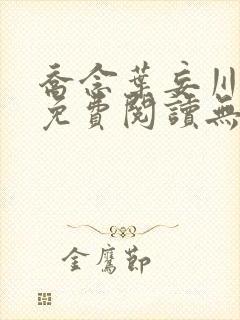 喬念葉妄川
免費閱讀無
金鷹節